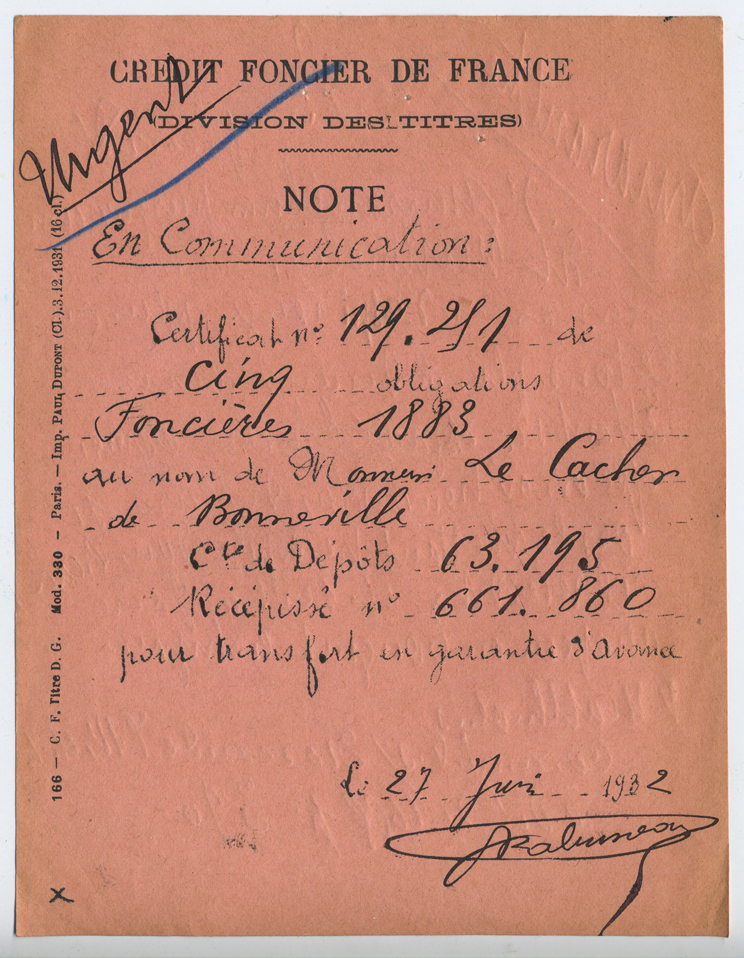 CREDIT FONCIER DE FRANCE
Urgent
(DIVISION DES TITRES)
NOTE
En Communication :
Certificat n° 129.251 de
Cinq obligations
Foncières 1883
au nom de Monsieur Le Cacher
de Bonneville
Cte de Dépôts 63.195
Récépissé n° 661.860
pour transfert en garantie d'avance
Le 27 Juin 1932
166 — C. F. Titre D. G. Mod. 330 — Paris. — Imp. PAUL DUPONT (Cl.).3.12.1931 (16 cl.)
X